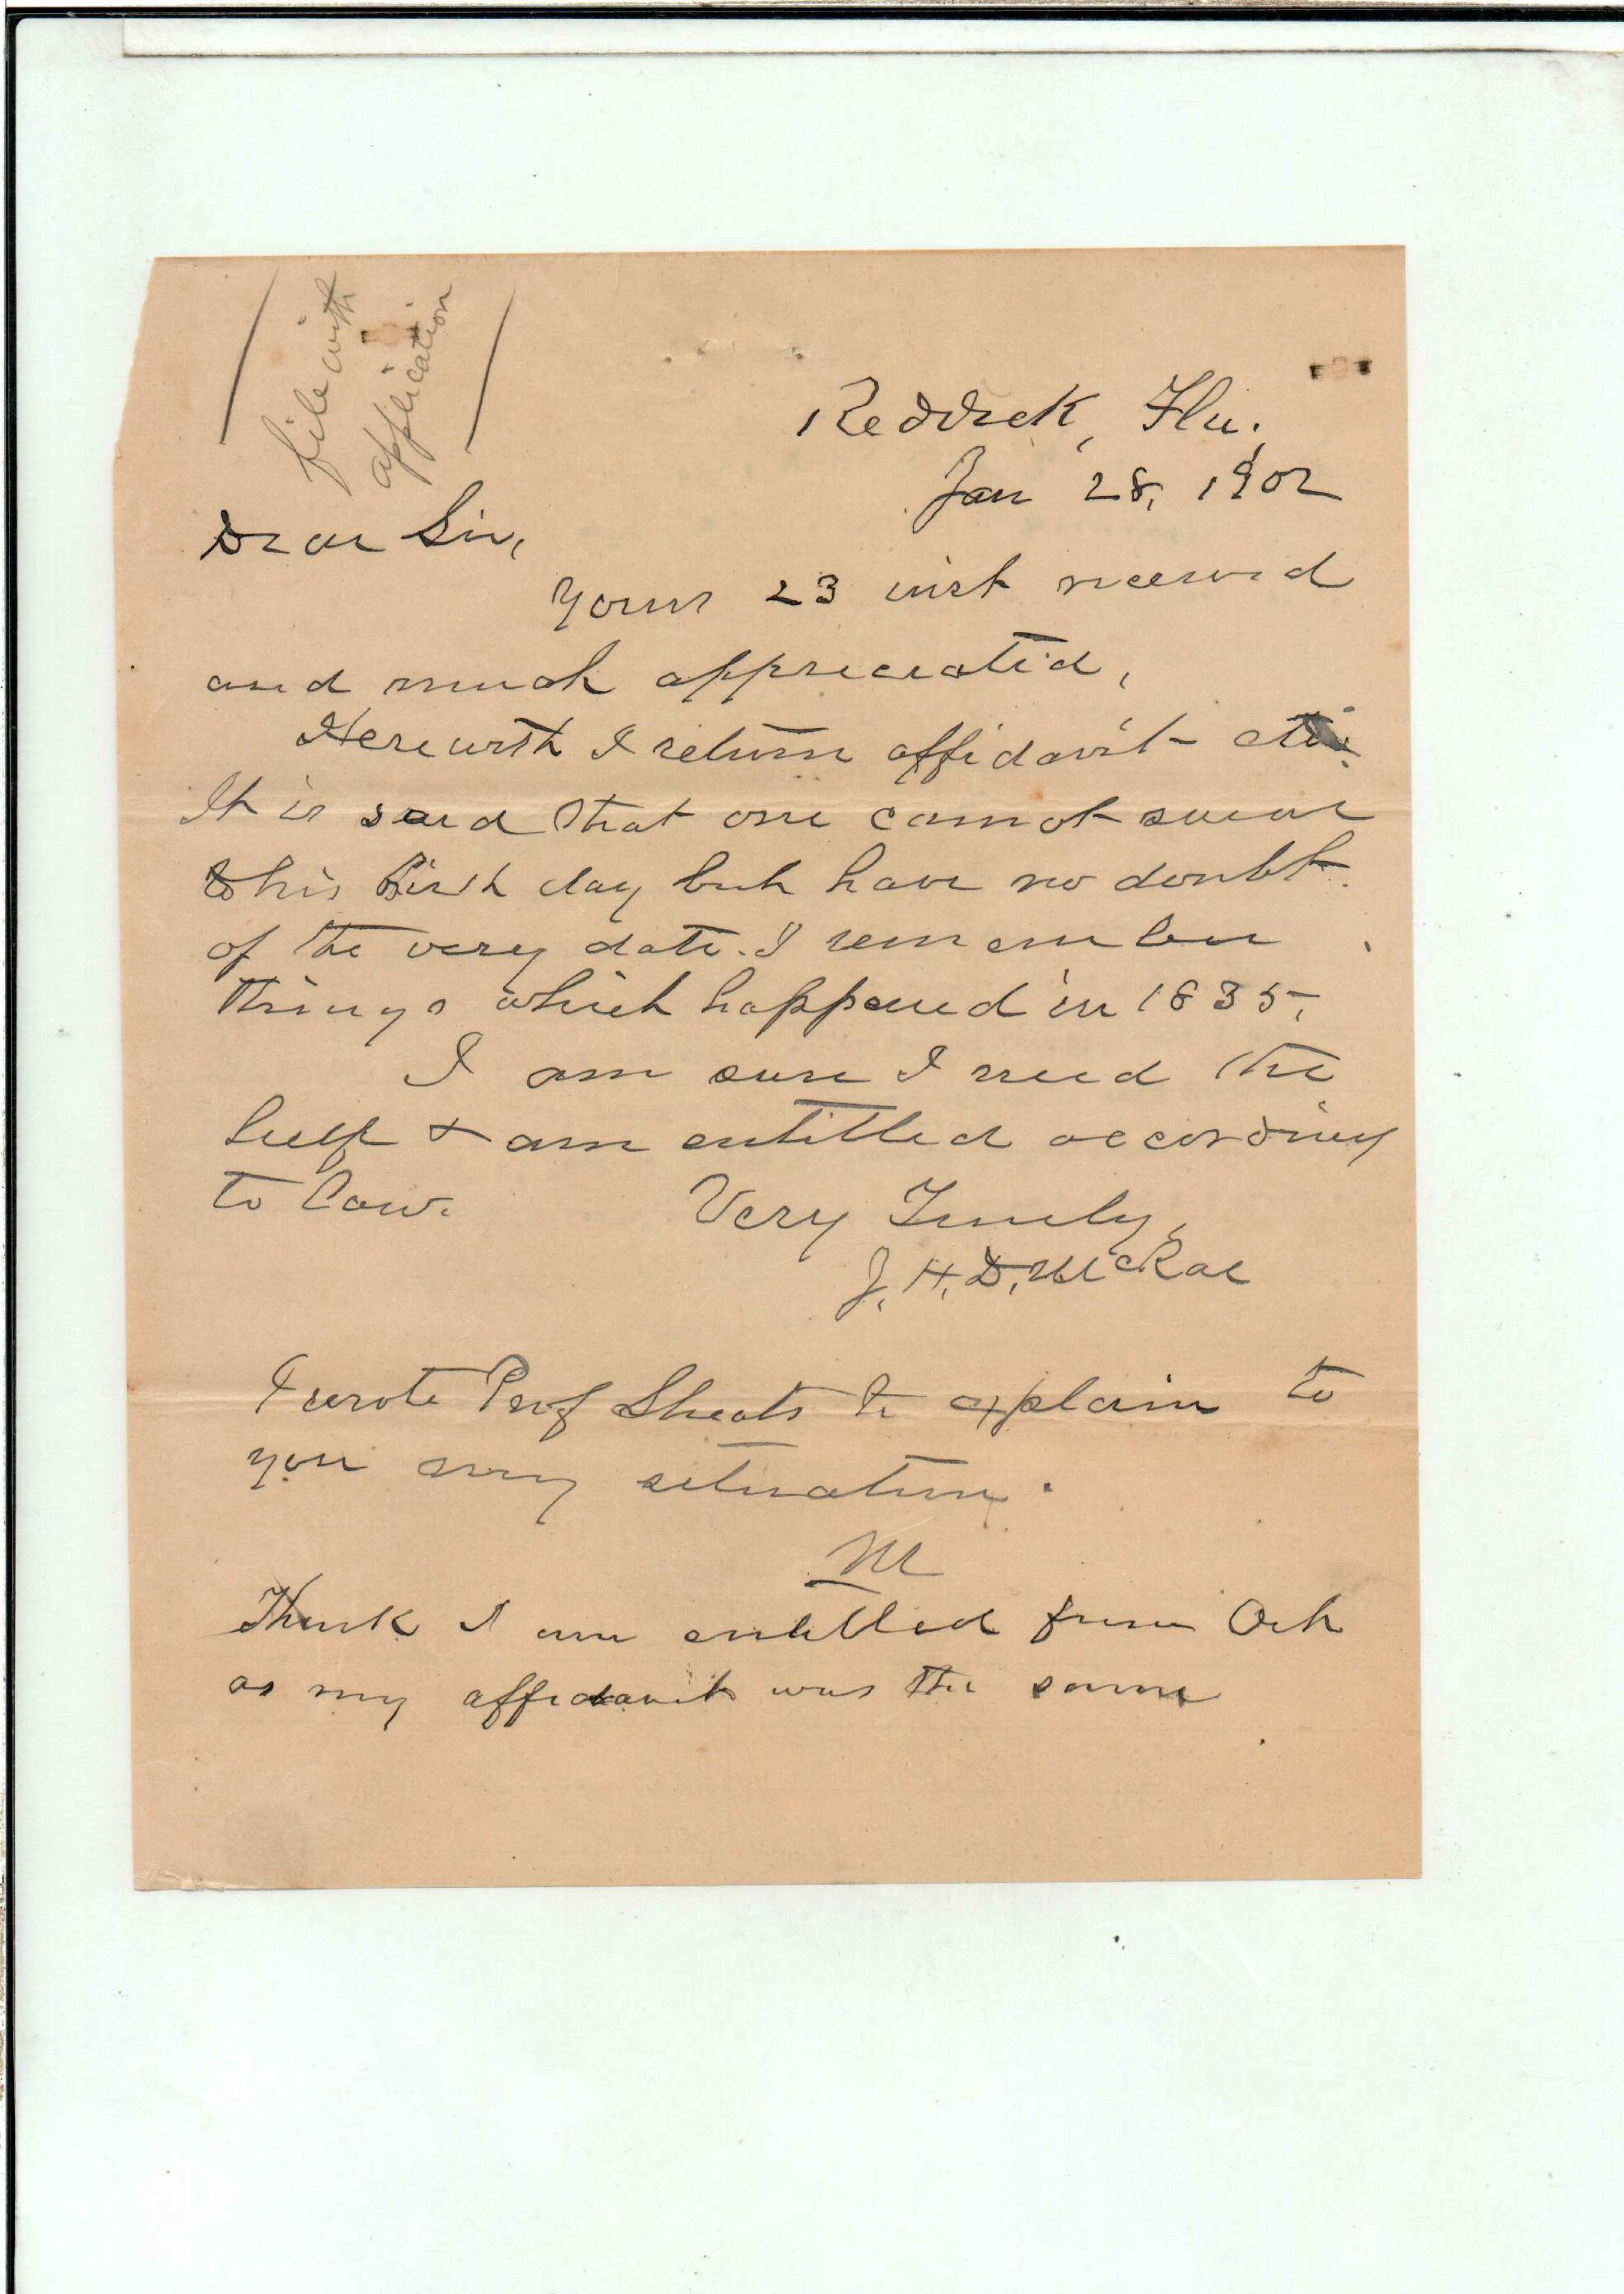 file with
application
Reddick, Fla.
Jan 28, 1902
Dear Sir,
Yours 23 inst received
and much appreciated,
Herewith I return affidavit etc.
It is said that one cannot swear
to his Birth day but have no doubt
of the very date. I remember
things which happened in 1835,
I am sure I need the
help & am entitled according
to law.
Very Truly,
J. H. D. McRae
I wrote Prof Sheats to explain to
you my situation.
M
Think I am entitled from Oct
as my affidavit was the same